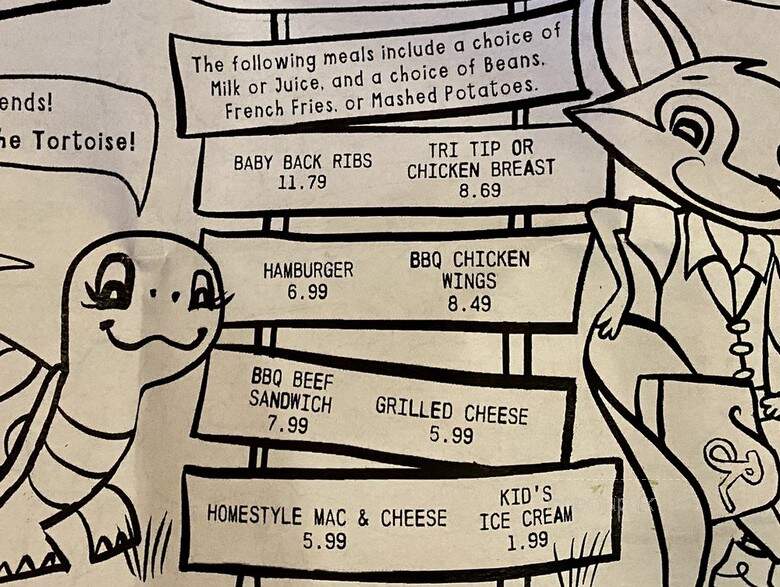 ends!
he Tortoise!
The following meals include a choice of
Milk or Juice, and a choice of Beans,
French Fries, or Mashed Potatoes.
BABY BACK RIBS
11.79
TRI TIP OR
CHICKEN BREAST
8.69
HAMBURGER
6.99
BBQ CHICKEN
WINGS
8.49
BBQ BEEF
SANDWICH
7.99
GRILLED CHEESE
5.99
HOMESTYLE MAC & CHEESE
5.99
KID'S
ICE CREAM
1.99
R